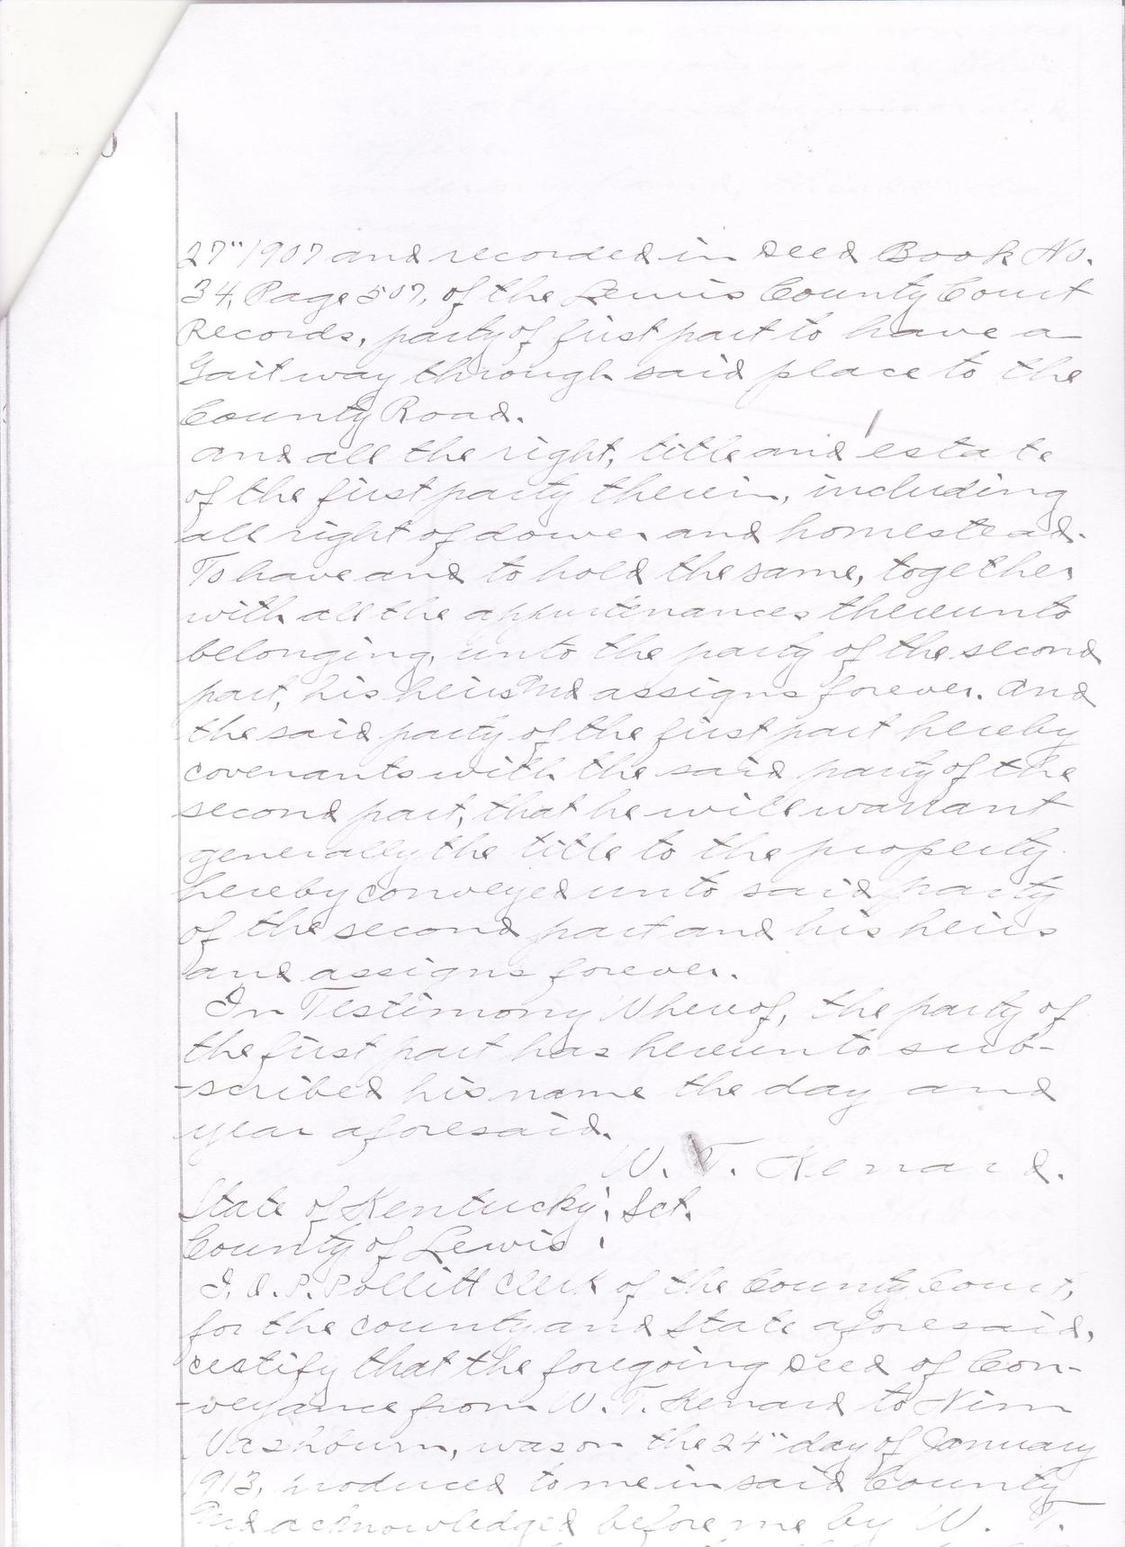 27" 1907 and recorded in Deed Book No.
34, Page 507, of the Lewis County Court
Records, party of first part to have a
Gait way through said place to the
County Road.
And all the right, title and estate
of the first party therein, including
all right of dower and homestead.
To have and to hold the same, together
with all the appurtenances thereunto
belonging, unto the party of the second
part, his heirs and assigns forever. And
the said party of the first part hereby
covenants with the said party of the
second part, that he will warrant
generally the title to the property
hereby conveyed unto said party
of the second part and his heirs
and assigns forever.
In Testimony Whereof, the party of
the first part has hereunto sub-
-scribed his name the day and
year aforesaid.
W. T. Kenard.
State of Kentucky; Sct.
County of Lewis :
I, O. P. Pollitt Clerk of the County Court,
for the county and State aforesaid,
certify that the foregoing deed of Con-
-veyance from W. T. Kenard to Nim
Washburn, was on the 24" day of January
1913, produced to me in said County
and acknowledged before me by W. T.